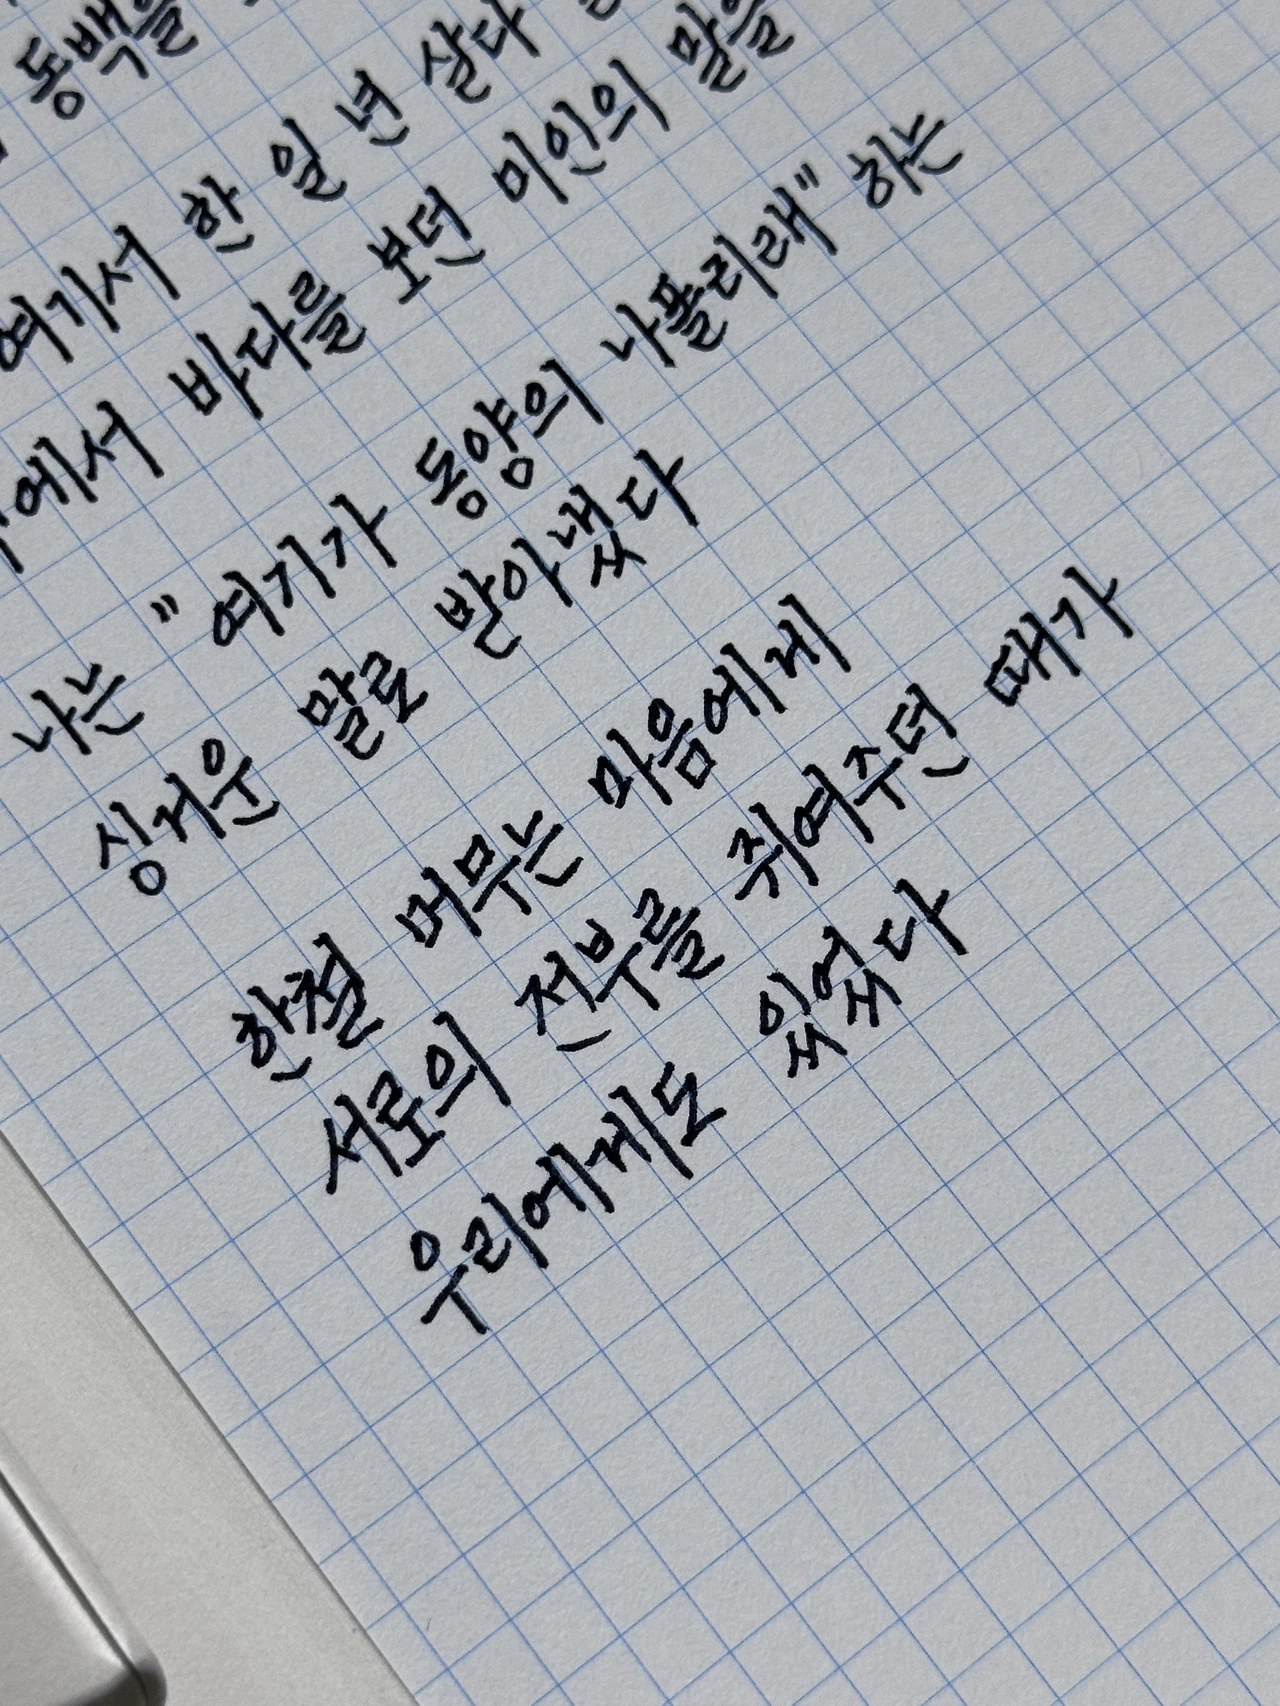 동백을
여기서 한 일 년 살다
에서 바다를 보던 미인의 말을
나는 "여기가 동양의 나폴리래" 하는
싱거운 말로 받아냈다
한철 머무는 마음에게
서로의 전부를 쥐여주던 때가
우리에게도 있었다